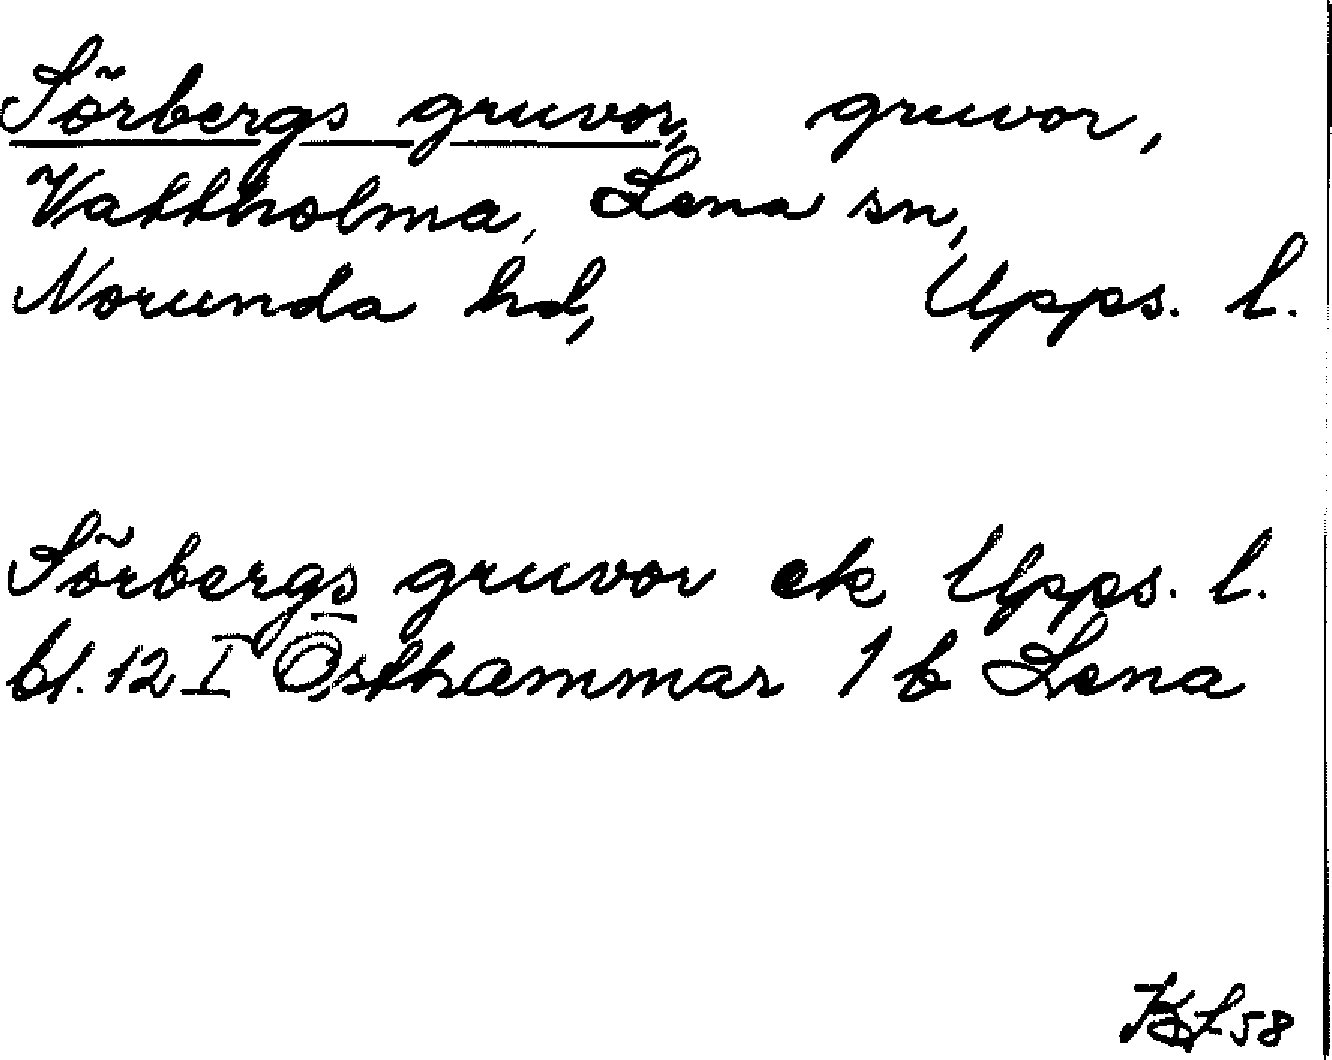 Sörbergs gruvor, gruvor,
Vattholma, Lena sn,
Norunda hd, Upps. l.
Sörbergs gruvor ek Upps. l.
bl. 12 I Östhammar 1 b Lena
58